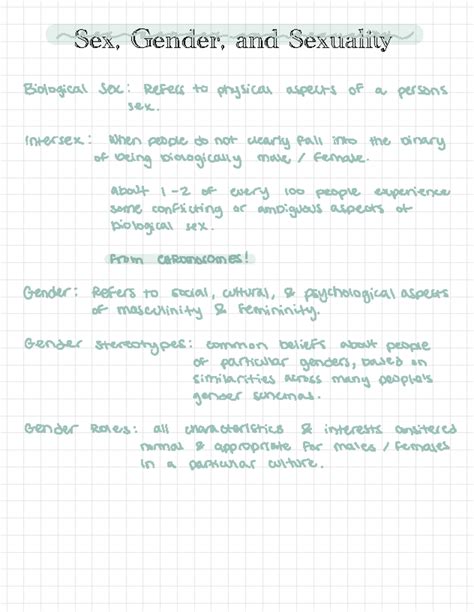 Sex, Gender, and Sexuality
Biological Sex: Refers to physical aspects of a persons
sex.
Intersex: When people do not clearly fall into the binary
of being biologically male / female.
About 1-2 of every 100 people experience
some conflicting or ambiguous aspects of
biological sex.
From chromosomes!
Gender: Refers to social, cultural, & psychological aspects
of masculinity & femininity.
Gender Stereotypes: common beliefs about people
of particular genders, based on
similarities across many people's
gender schemas.
Gender Roles: all characteristics & interests considered
normal & appropriate for males / females
in a particular culture.